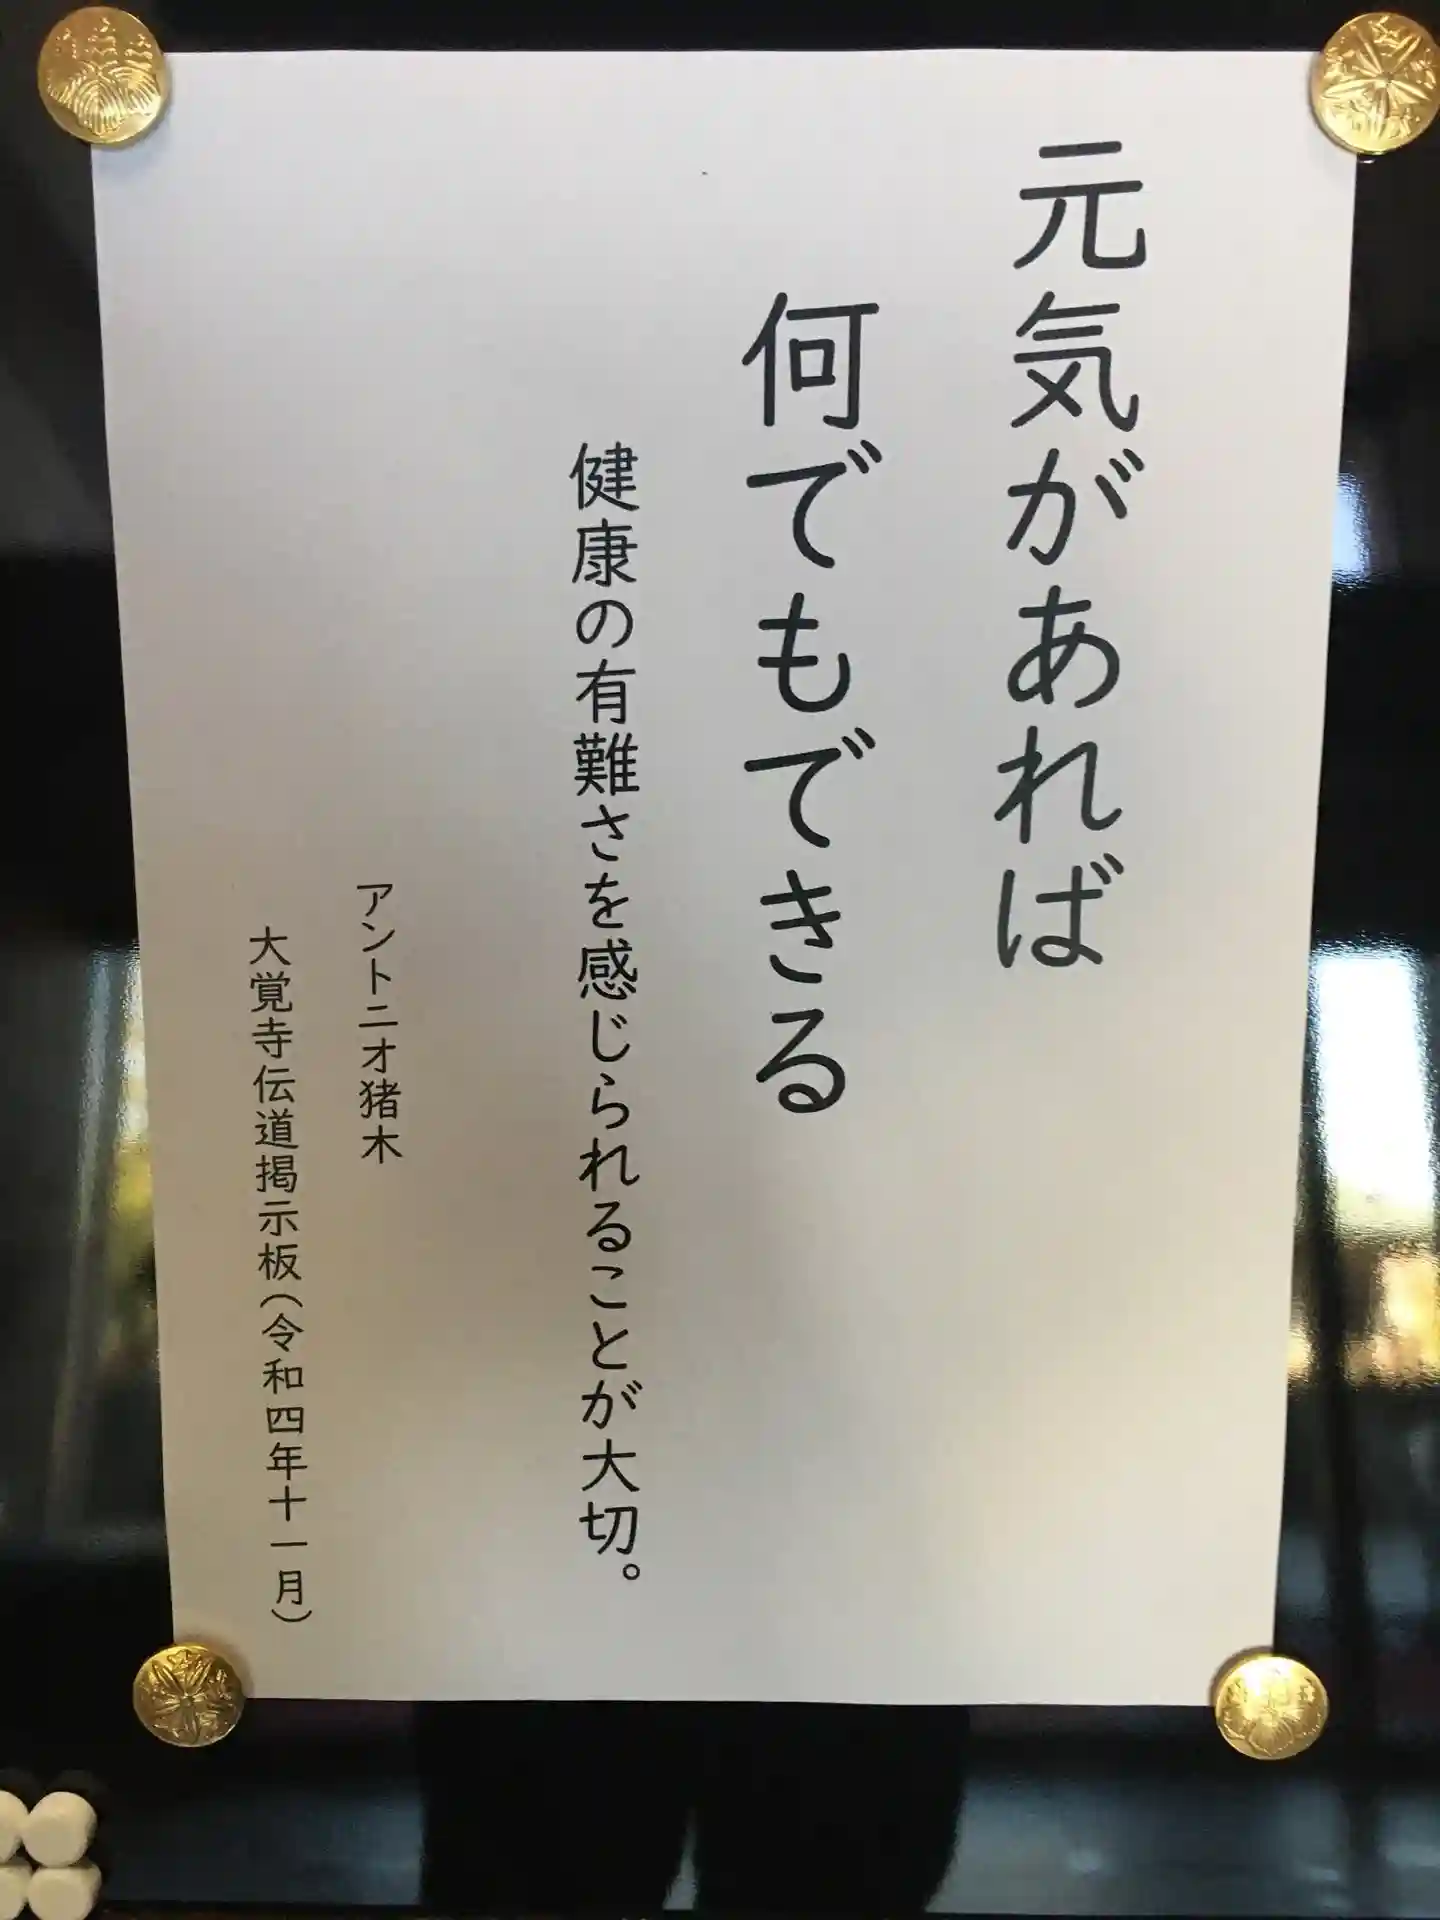 元気があれば
何でもできる
健康の有難さを感じられることが大切。
アントニオ猪木
大覚寺伝道掲示板(令和四年十一月)